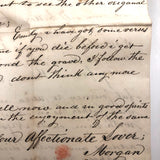 see the other original
Emily, I have got some verses
if you die before I get
beyond the grave, I follow the
dont think any more
well now and in good spirits
the enjoyment of the same
Your Affectionate Lover;
Morgan